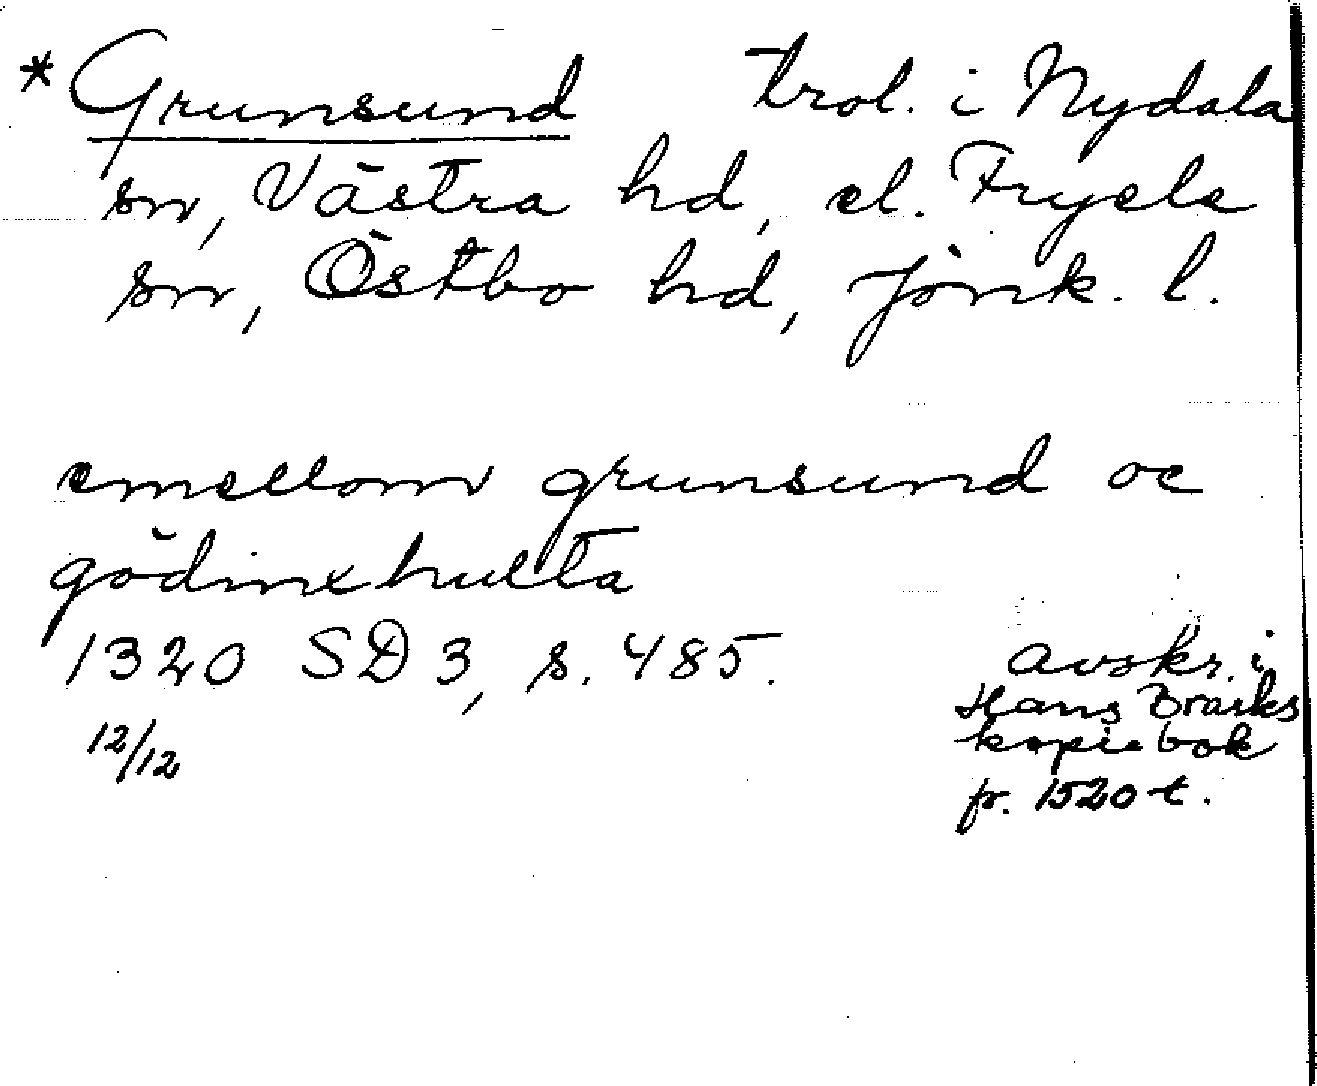 * Grunsund trol. i Nydala
sn, Västra hd, el. Fryele
sn, Östbo hd, Jönk. l.
emellom grunsund oc
gödinxhulta
1320 SD 3, s. 485.
12/12
avskr. i
Hans Brasks
kopiebok
fr. 1520-t.